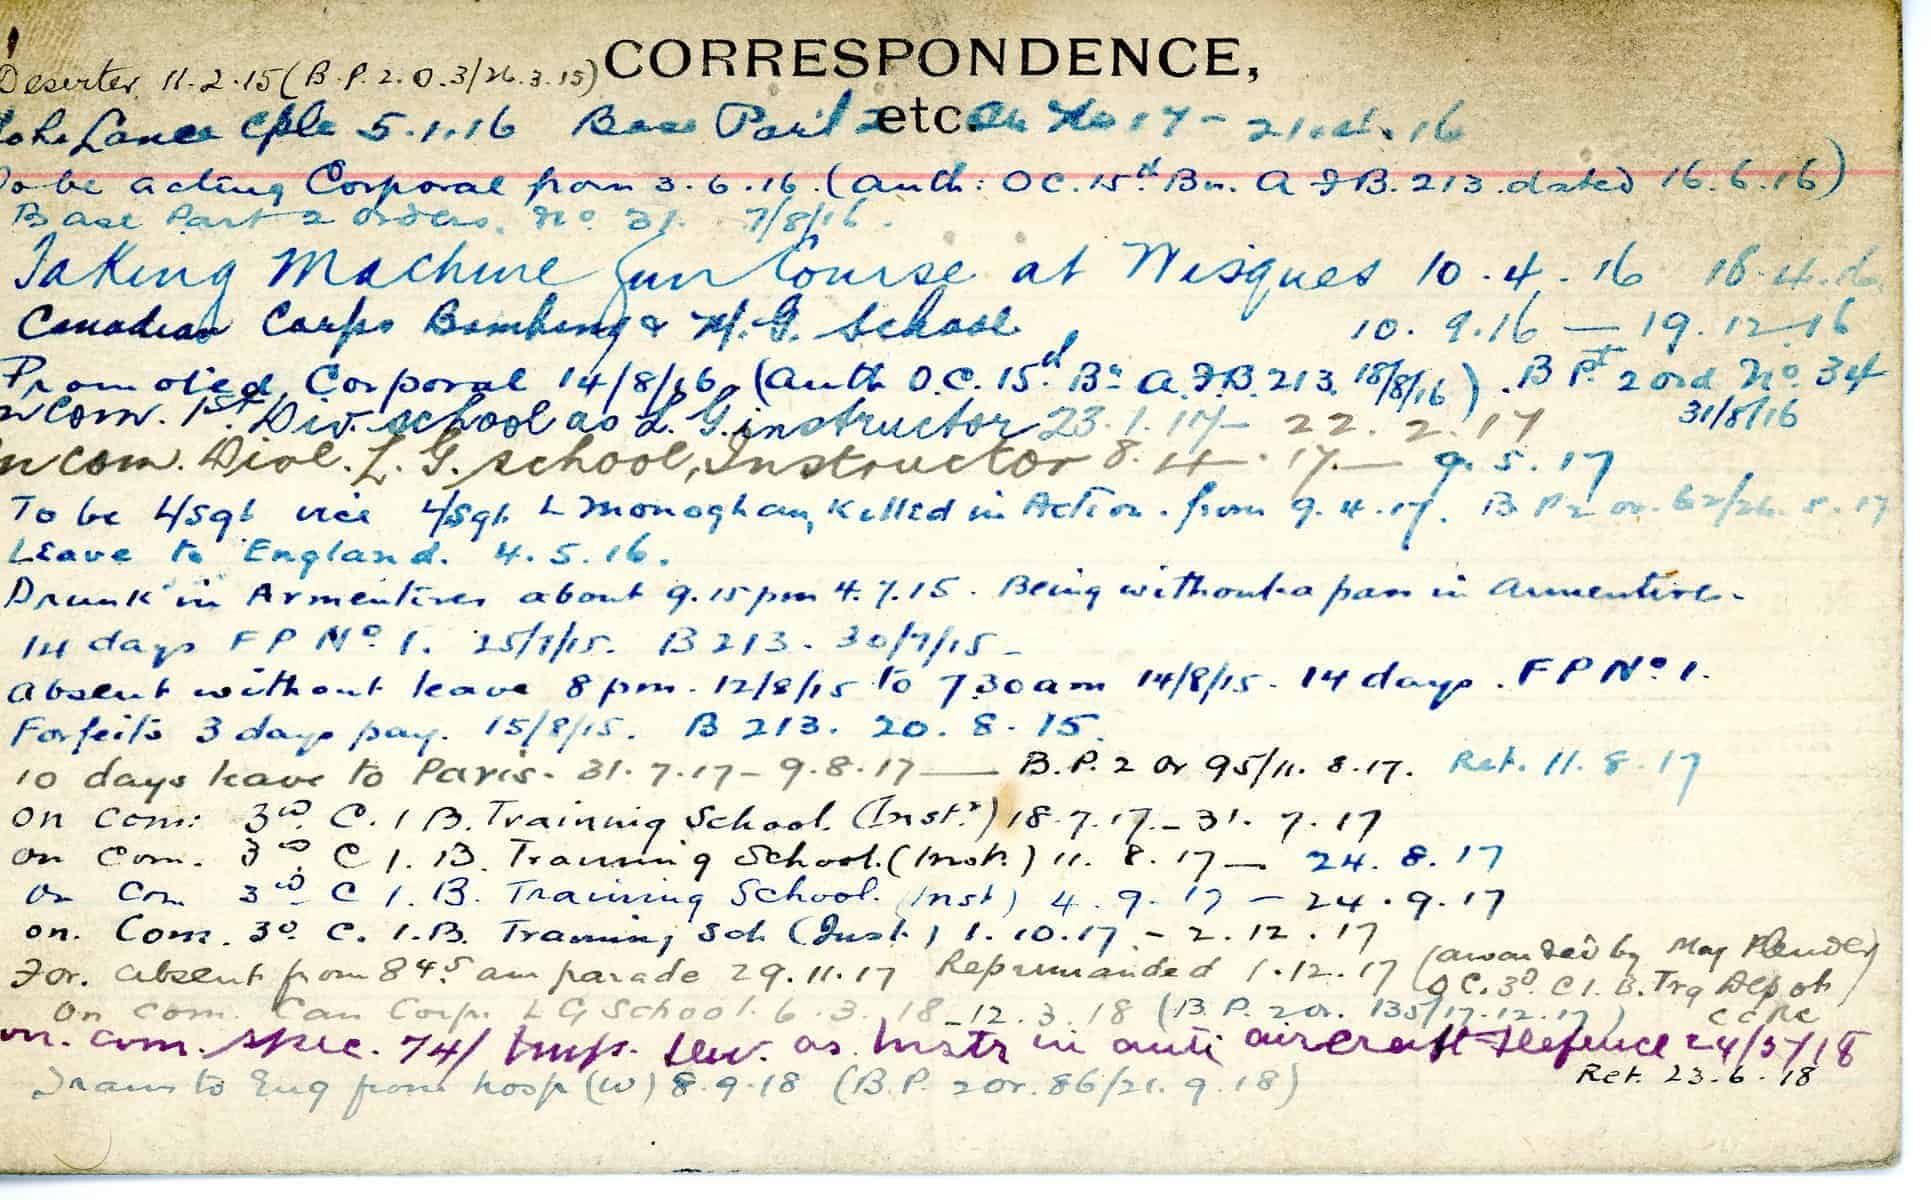 CORRESPONDENCE,
Deserter 11.2.15 (B.P.2.O.3/26.3.15)
etc.
Lance Cple 5.1.16 Base Part 2 No 17 - 16
To be acting Corporal from 3.6.16. (auth: OC. 15th Bn. A F B. 213. dated 16.6.16)
Base Part 2 orders. No 31. 7/8/16.
Taking Machine Gun Course at Wisques 10.4.16 16.4.16
Canadian Corps Bombing & M.G. School 10.9.16 — 19.12.16
Promoted Corporal 14/8/16. (Auth O.C. 15th Bn A.F.B. 213. 18/8/16). B Pt 2 ord No. 34
31/8/16
on Com. 1st Div. school as L.G. instructor 23.1.17 - 22.2.17
on com. Divl. L.G. school, Instructor 8.4.17. — 9.5.17
To be L/Sgt vice L/Sgt. L Monoghan, Killed in Action. from 9.4.17. B P 2 or. 62/26.5.17
Leave to England. 4.5.16.
Drunk in Armentires about 9.15 pm 4.7.15. Being without a pass in Armentire.
14 days F P No 1. 25/7/15. B 213. 30/7/15-
Absent without leave 8 pm. 12/8/15 to 7.30 am 14/8/15. 14 days. F P No 1.
Forfeits 3 days pay. 15/8/15. B 213. 20.8.15.
10 days leave to Paris. 31.7.17 - 9.8.17 — B.P. 2 Or 95/11.8.17. Ret. 11.8.17
On Com: 3rd C.I.B. Training School. (Instr) 18.7.17. - 31.7.17
On Com. 3rd C.I.B. Training School. (Inst.) 11.8.17 — 24.8.17
On Com 3rd C.I.B. Training School. (Inst) 4.9.17 - 24.9.17
on. Com. 3d. C.I.B. Training Sch (Inst.) 1.10.17. - 2.12.17
For. absent from 8 45 am parade 29.11.17 Reprimanded 1.12.17 (awarded by Maj
O C. 3d. C I. B. Trg Depot)
On com. Can Corps. L G School. 6.3.18 - 12.3.18 (B.P. 2 or. 135/17.12.17) C C R C
on. com. spec. 74/ as Instr in anti aircraft Defence 24/5/18
Ret. 23.6.18
Trans to Eng from hosp (W) 8.9.18 (B.P. 2 or. 86/21.9.18)